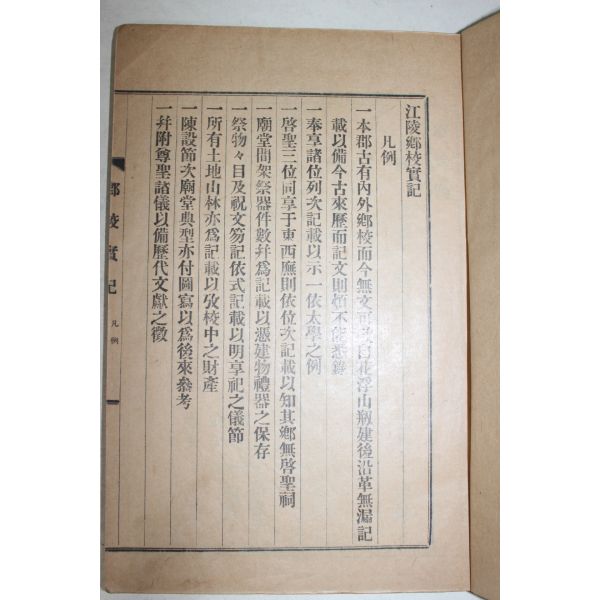 江陵鄕校實記
凡例
一本郡古有內外鄕校而今無文可攷自花浮山刱建後沿革無漏記
載以備今古來歷而記文則煩不能悉錄
一奉享諸位列次記載以示一依太學之例
一啓聖三位同享于東西廡則依位次記載以知其鄕無啓聖祠
一廟堂間架祭器件數幷爲記載以憑建物禮器之保存
一祭物々目及祝文笏記依式記載以明享祀之儀節
一所有土地山林亦爲記載以攷校中之財產
一陳設節次廟堂典型亦付圖寫以爲後來參考
一幷附尊聖諸儀以備歷代文獻之徵
鄕校實記
凡例